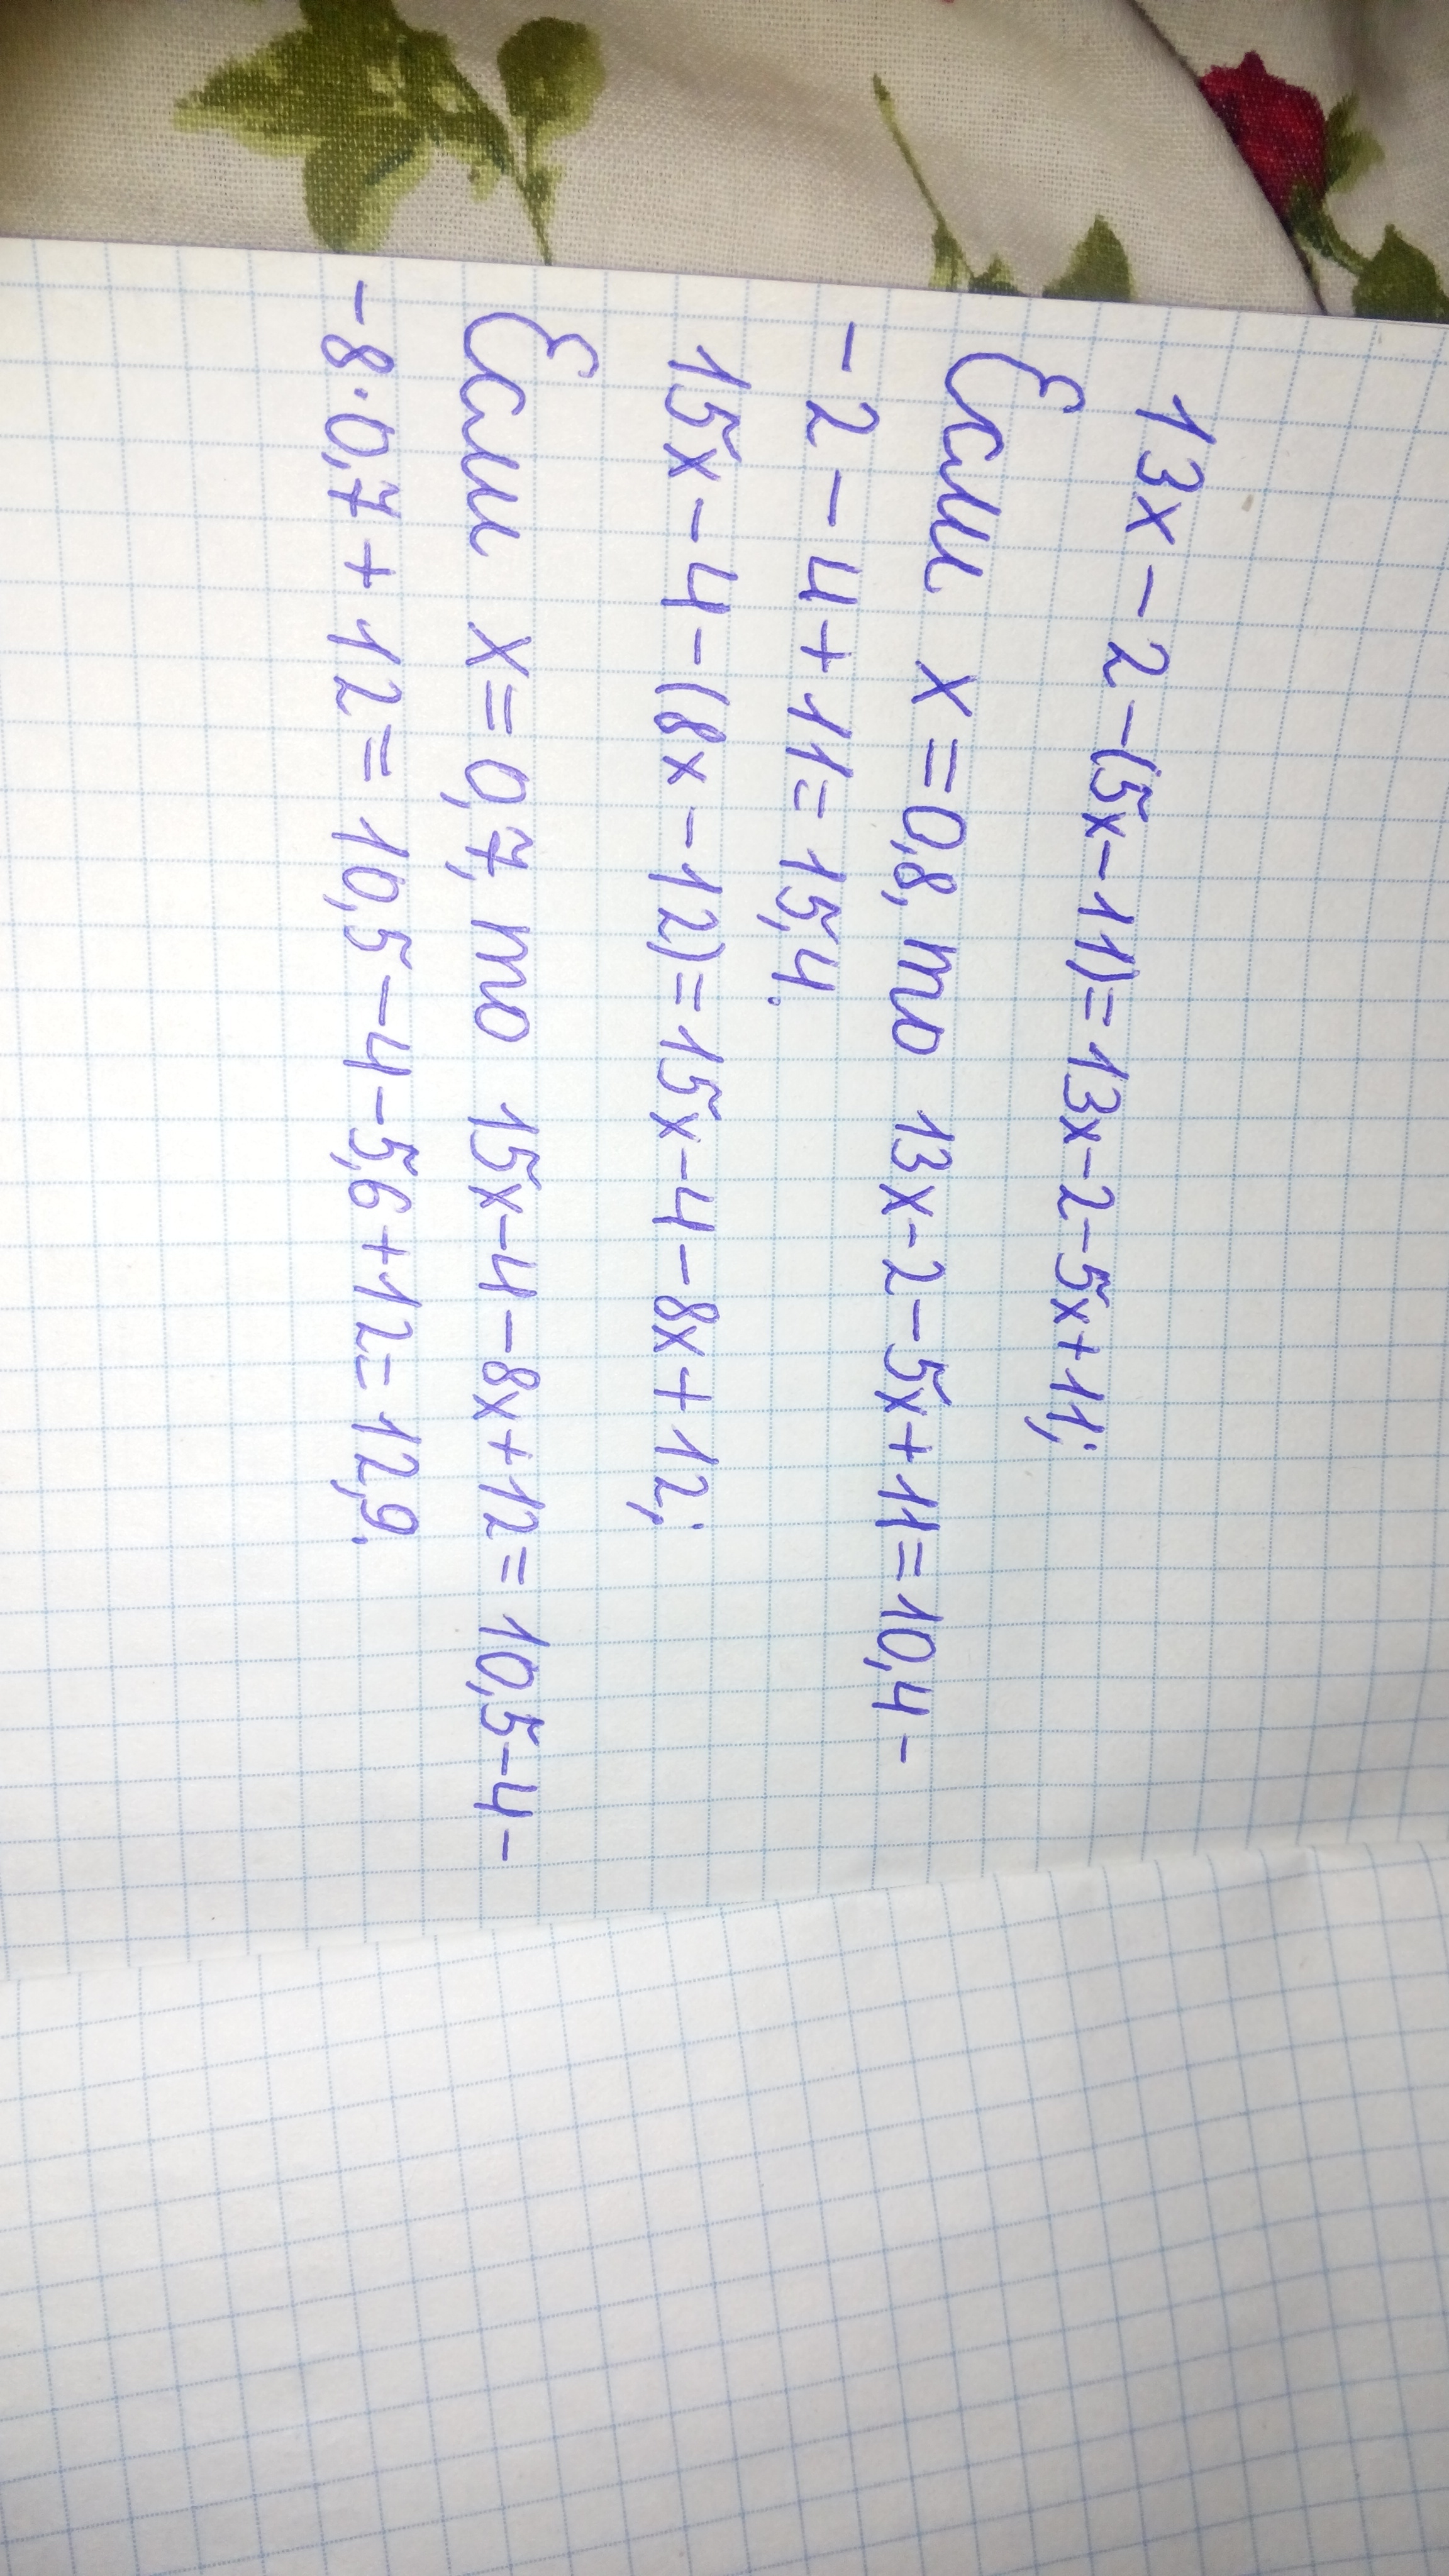 13x - 2 - (5x - 11) = 13x - 2 - 5x + 11;
Если x = 0,8, то 13x - 2 - 5x + 11 = 10,4 -
- 2 - 4 + 11 = 15,4.
15x - 4 - (8x - 12) = 15x - 4 - 8x + 12;
Если x = 0,7, то 15x - 4 - 8x + 12 = 10,5 - 4 -
- 8 · 0,7 + 12 = 10,5 - 4 - 5,6 + 12 = 12,9.